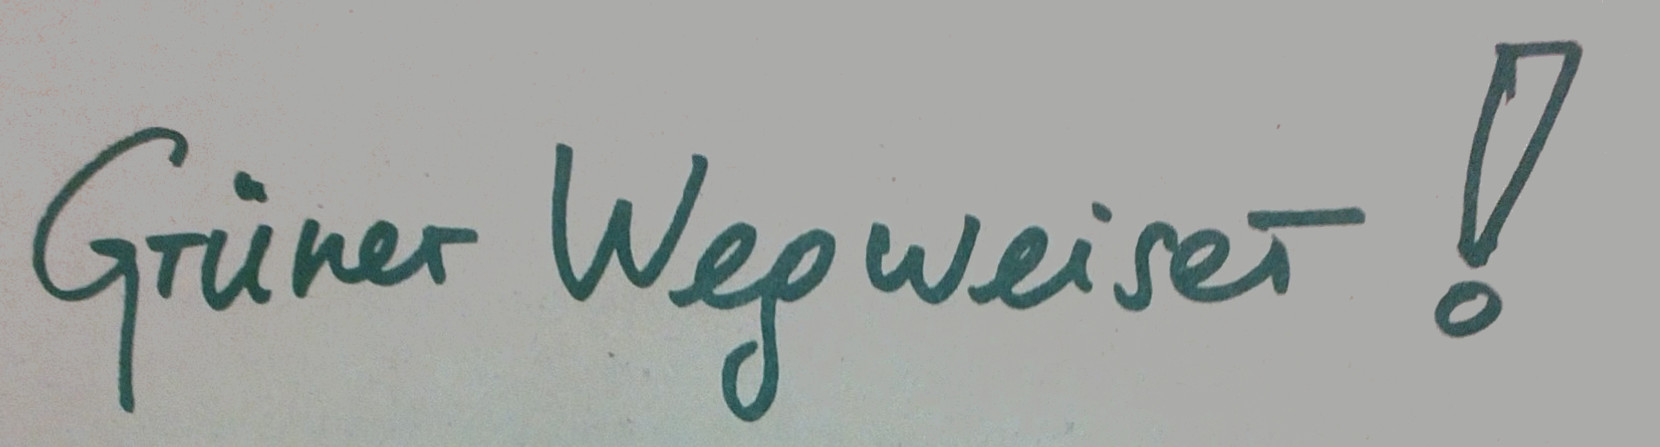 Grüner Wegweiser!